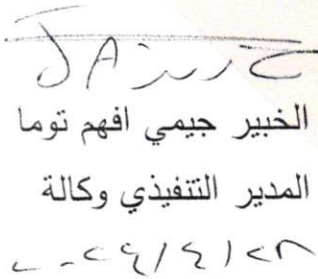 الخبير جيمي افهم توما
المدير التنفيذي وكالة
٢٠٢٤/٤/٢٨